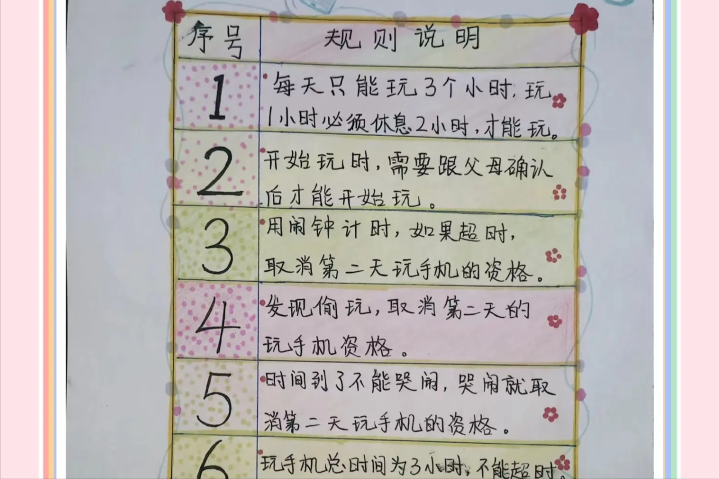 序号 规则说明
1 每天只能玩3个小时,玩
1小时必须休息2小时,才能玩。
2 开始玩时,需要跟父母确认
后才能开始玩。
3 用闹钟计时,如果超时,
取消第二天玩手机的资格。
4 发现偷玩,取消第二天的
玩手机资格。
5 时间到了不能哭闹,哭闹就取
消第二天玩手机的资格。
6 玩手机总时间为3小时,不能超时。